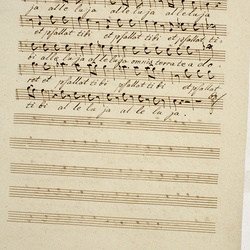 ja alle lu ja alleluja alleluja
et psallat tibi et psallat tibi et psallat ti-
bi alle luja alleluja omnis terra te a do-
ret et psallat tibi et psallat tibi et psallat
ti bi al le lu ja al le lu ja.